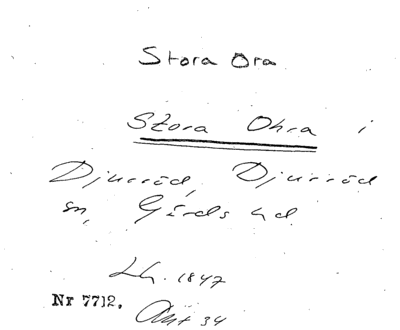 Stora Ora
Stora Ohra i
Djurröd, Djurröd
sn, Gärds hd
Lh. 1847
Nr 7712. Akt 34